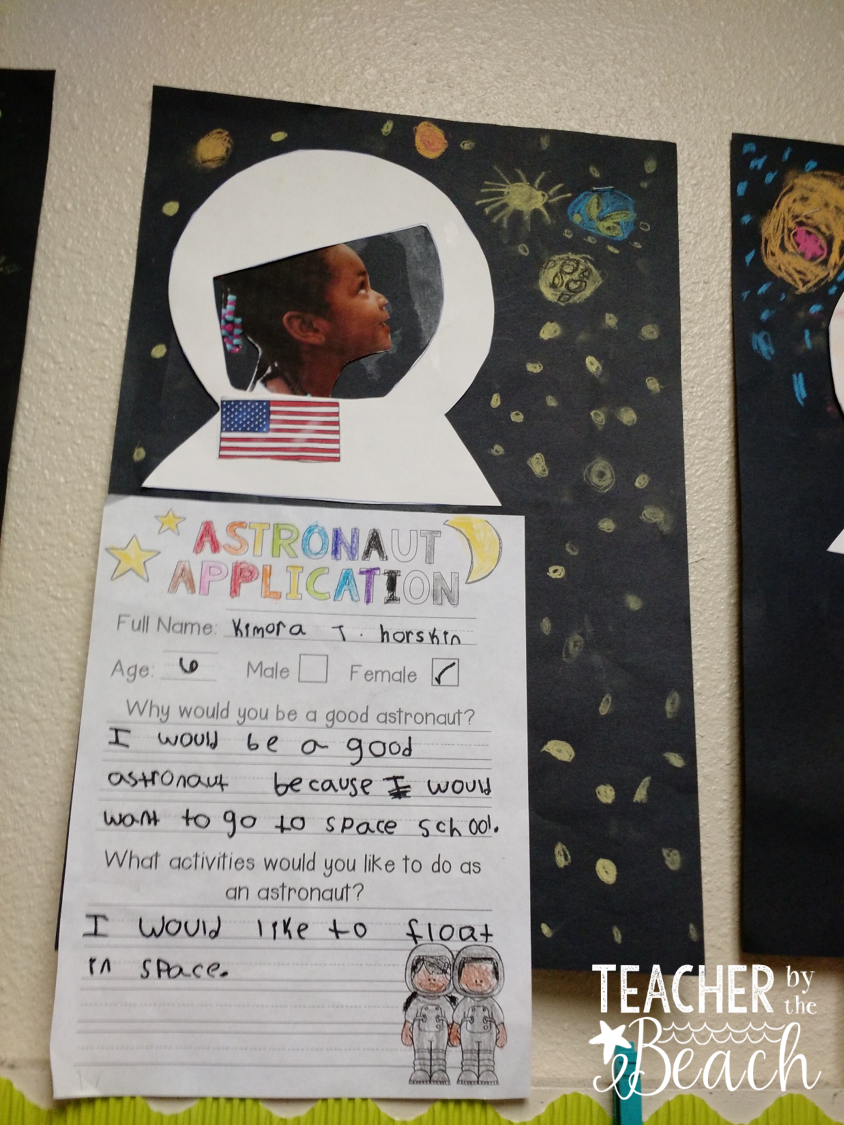 ASTRONAUT
APPLICATION
Full Name: Kimora J. horskin
Age: 6 Male Female ✓
Why would you be a good astronaut?
I would be a good
astronaut because I would
want to go to space school.
What activities would you like to do as
an astronaut?
I would like to float
in space.
TEACHER by the
Beach